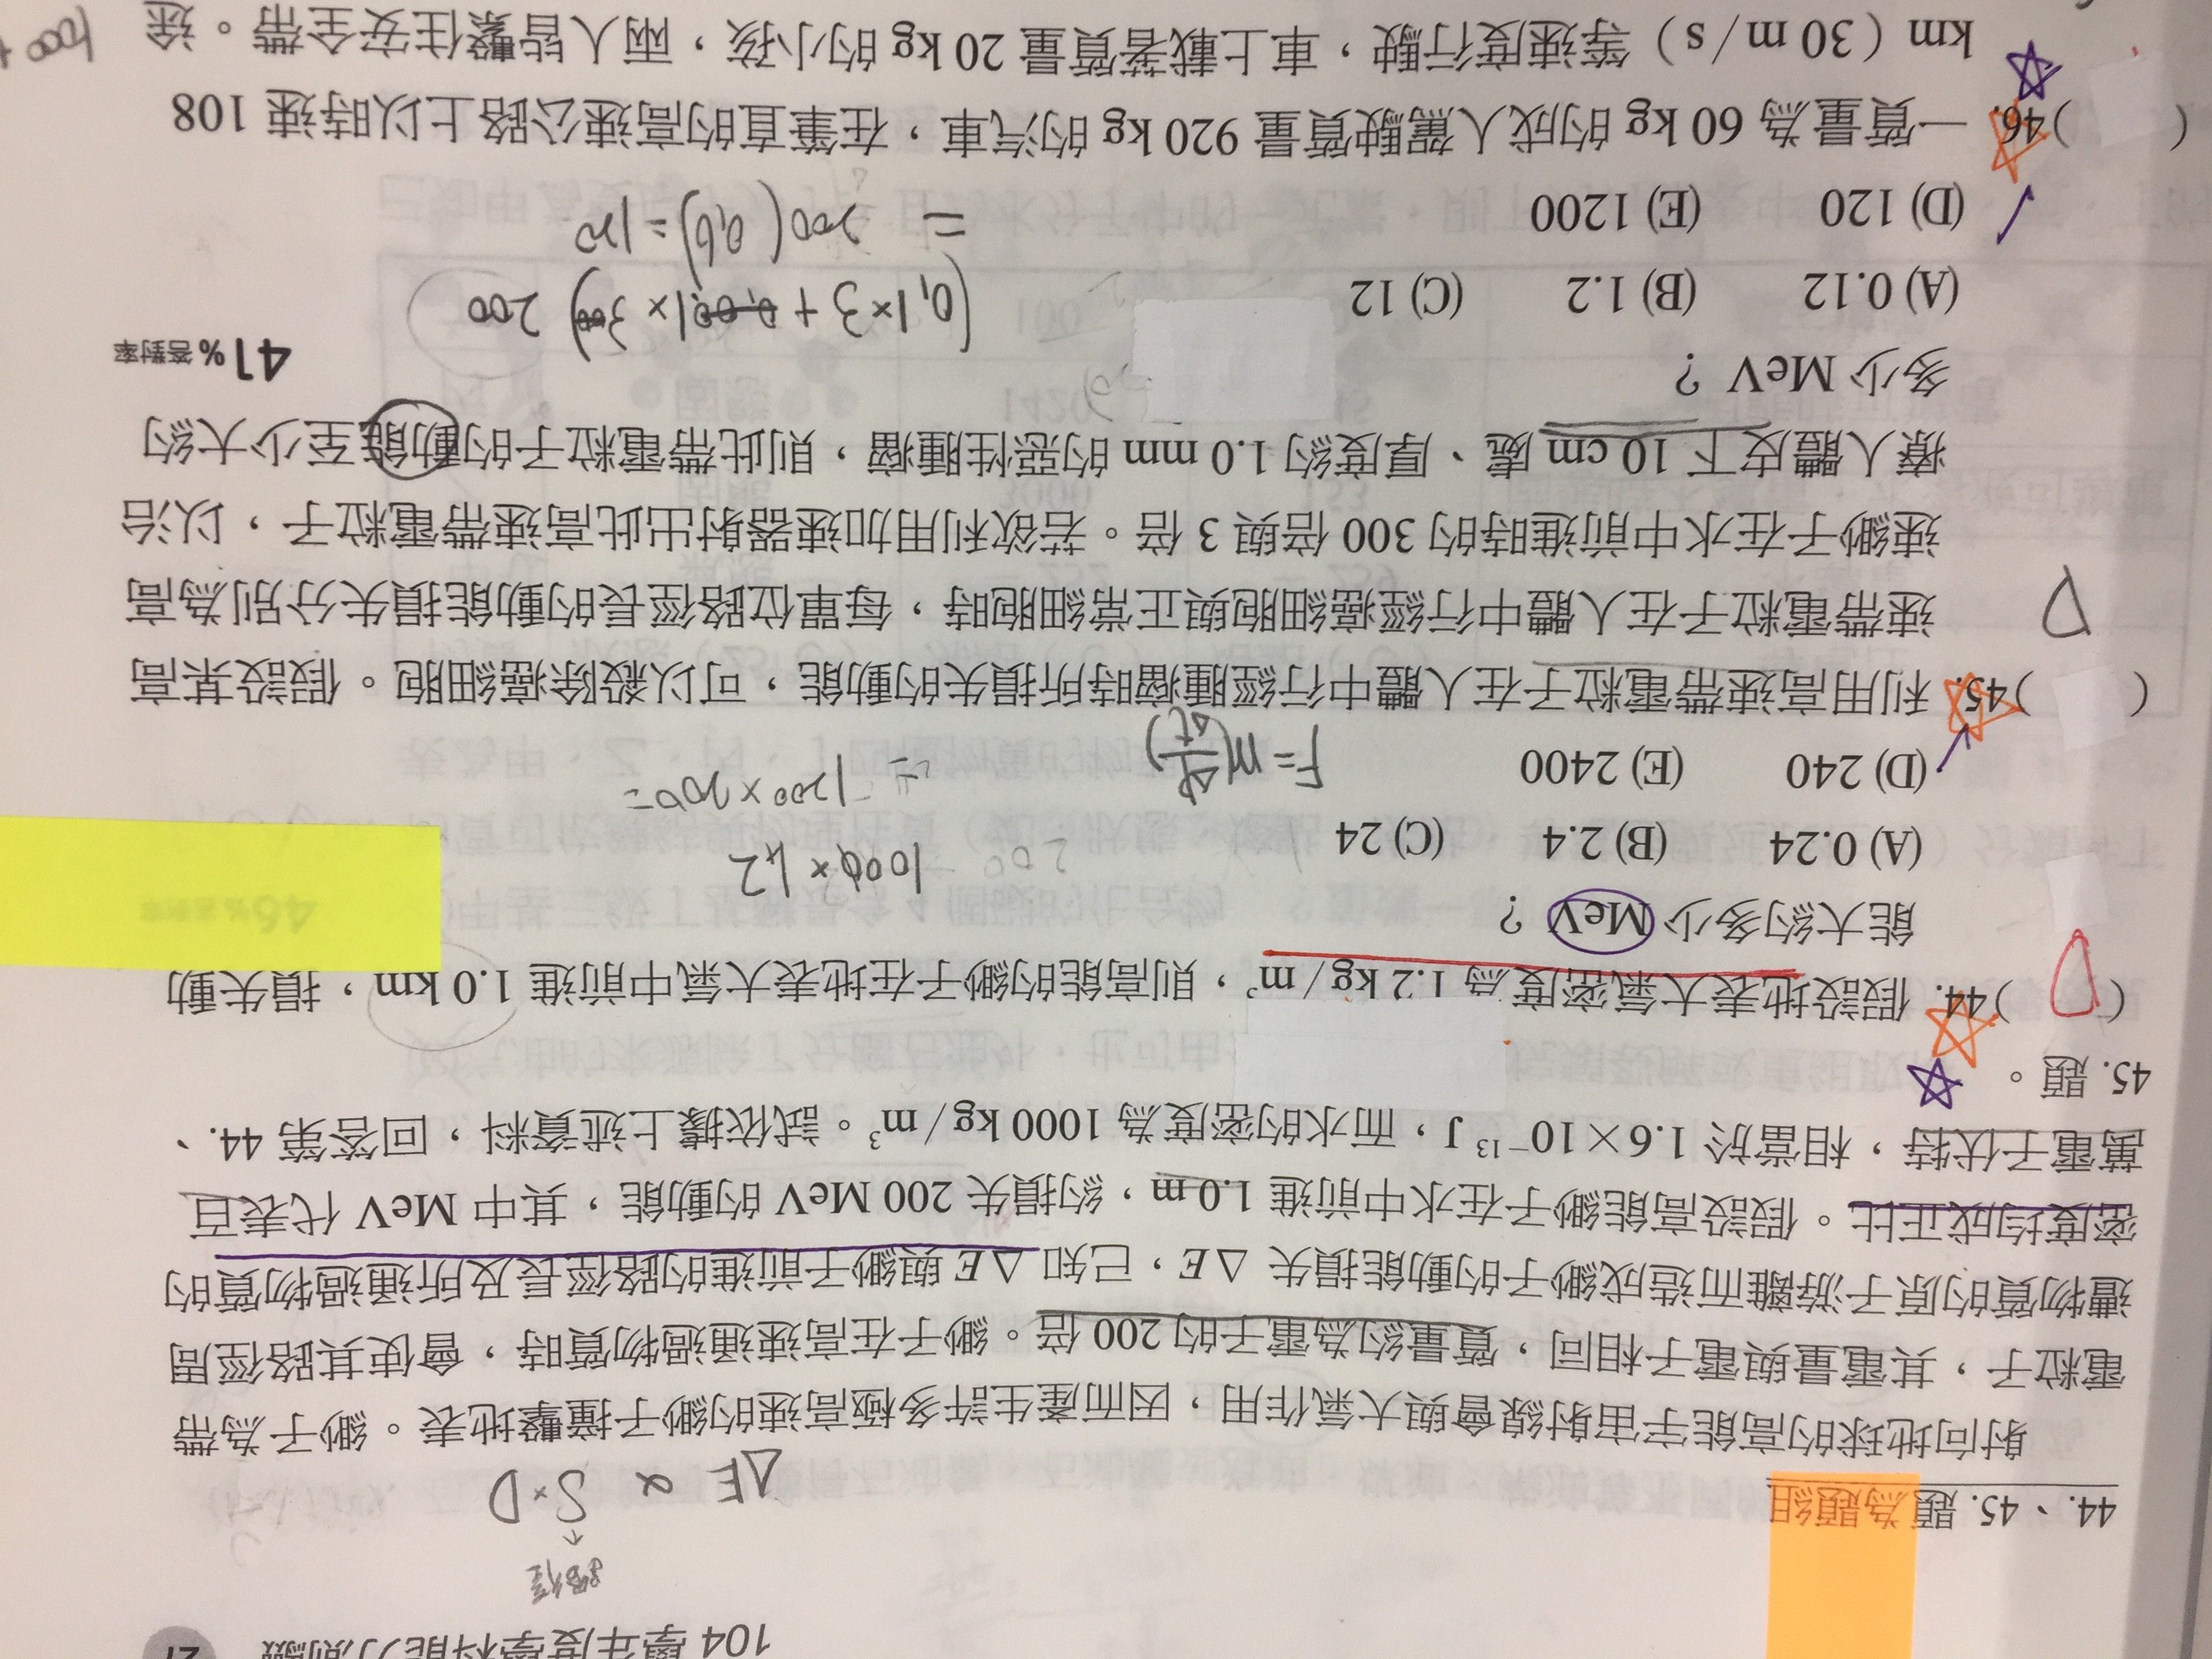 104 學年度學科能力測驗
27
路徑
44.、45. 題為題組
ΔE ∝ S×D
射向地球的高能宇宙射線會與大氣作用，因而產生許多極高速的緲子撞擊地表。緲子為帶
電粒子，其電量與電子相同，質量約為電子的 200 倍。緲子在高速通過物質時，會使其路徑周
遭物質的原子游離而造成緲子的動能損失 △E，已知 △E 與緲子前進的路徑長及所通過物質的
密度均成正比。假設高能緲子在水中前進 1.0 m，約損失 200 MeV 的動能，其中 MeV 代表百
萬電子伏特，相當於 1.6×10⁻¹³ J，而水的密度為 1000 kg/m³。試依據上述資料，回答第 44.、
45. 題。
( D )44. 假設地表大氣密度為 1.2 kg/m³，則高能的緲子在地表大氣中前進 1.0 km，損失動
能大約多少 MeV？
(A) 0.24 (B) 2.4 (C) 24
(D) 240 (E) 2400
46%答對率
1000×1.2
1200×200=
F=m(
( )45. 利用高速帶電粒子在人體中行經腫瘤時所損失的動能，可以殺除癌細胞。假設某高
速帶電粒子在人體中行經癌細胞與正常細胞時，每單位路徑長的動能損失分別為高
D
速緲子在水中前進時的 300 倍與 3 倍。若欲利用加速器射出此高速帶電粒子，以治
療人體皮下 10 cm 處、厚度約 1.0 mm 的惡性腫瘤，則此帶電粒子的動能至少大約
多少 MeV？
41%答對率
(A) 0.12 (B) 1.2 (C) 12
(D) 120 (E) 1200
(0.1×3+0.001×300) 200
= 200(0.6)=120
( )46. 一質量為 60 kg 的成人駕駛質量 920 kg 的汽車，在筆直的高速公路上以時速 108
km（30 m/s）等速度行駛，車上載著質量 20 kg 的小孩，兩人皆繫住安全帶。途
1000